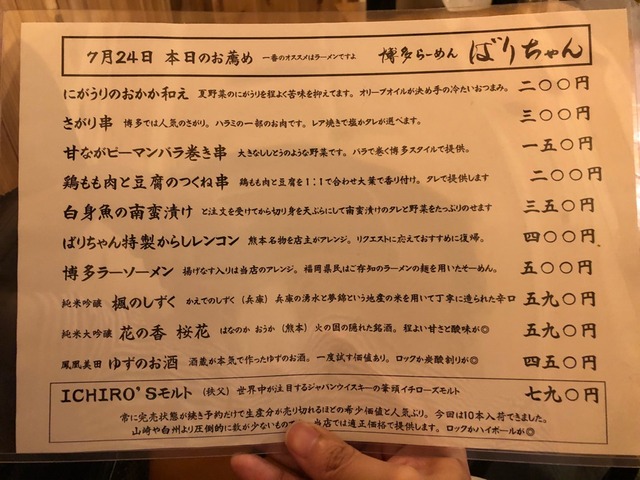 7月24日 本日のお薦め 一番のオススメはラーメンですよ 博多らーめん ばりちゃん
にがうりのおかか和え 夏野菜のにがうりを程よく苦味を抑えてます。オリーブオイルが決め手の冷たいおつまみ。 二〇〇円
さがり串 博多では人気のさがり。ハラミの一部のお肉です。レア焼きで塩かタレが選べます。 三〇〇円
甘ながピーマンバラ巻き串 大きなししとうのような野菜です。バラで巻く博多スタイルで提供。 一五〇円
鶏もも肉と豆腐のつくね串 鶏もも肉と豆腐を1:1で合わせ大葉で香り付け。タレで提供します 二〇〇円
白身魚の南蛮漬け ど注文を受けてから切り身を天ぷらにして南蛮漬けのタレと野菜をたっぷりのせます 三五〇円
ばりちゃん特製からしレンコン 熊本名物を店主がアレンジ。リクエストに応えておすすめに復帰。 四〇〇円
博多ラーソーメン 揚げなす入りは当店のアレンジ。福岡県民はご存知のラーメンの麺を用いたそーめん。 五〇〇円
純米吟醸 楓のしずく かえでのしずく（兵庫）兵庫の湧水と夢錦という地産の米を用いて丁寧に造られた辛口 五九〇円
純米大吟醸 花の香 桜花 はなのか おうか（熊本）火の国の隠れた銘酒。程よい甘さと酸味が◎ 五九〇円
鳳凰美田 ゆずのお酒 酒蔵が本気で作ったゆずのお酒。一度試す価値あり。ロックか炭酸割りが◎ 四五〇円
ICHIRO'Sモルト （秩父）世界中が注目するジャパンウイスキーの筆頭イチローズモルト 七九〇円
常に完売状態が続き予約だけで生産分が売り切れるほどの希少価値と人気ぶり。今回は10本入荷できました。
山崎や白州より圧倒的に数が少ないもので 当店では適正価格で提供します。ロックかハイボールが◎